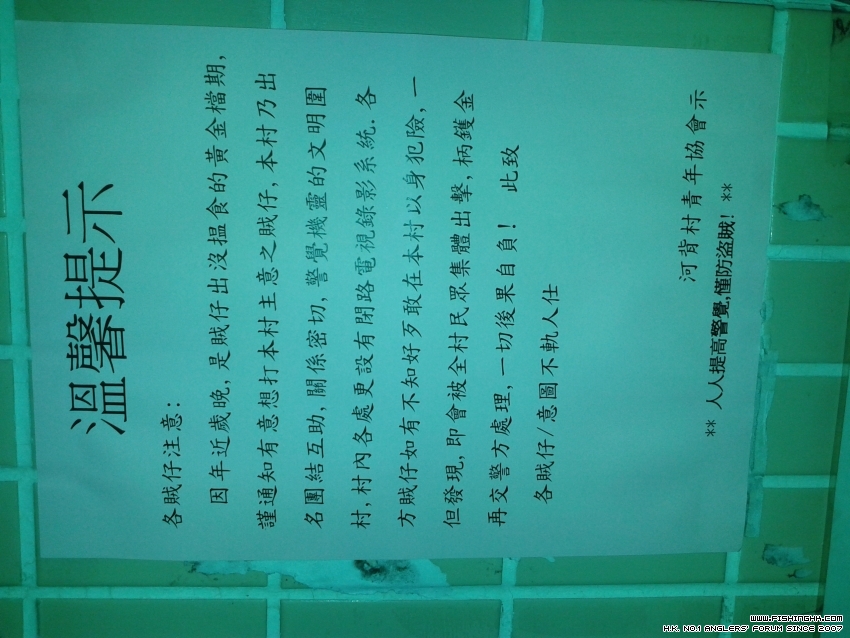 溫馨提示
各賊仔注意:
因年近歲晚,是賊仔出沒搵食的黃金檔期,
謹通知有意想打本村主意之賊仔,本村乃出
名團結互助,關係密切,警覺機靈的文明圍
村,村內各處更設有閉路電視錄影系統.各
方賊仔如有不知好歹敢在本村以身犯險,一
但發現,即會被全村民眾集體出擊,柄鑊金
再交警方處理,一切後果自負! 此致
各賊仔/意圖不軌人仕
河背村青年協會示
** 人人提高警覺,僅防盜賊! **
www.fishinghk.com
H.K. No.1 Anglers' Forum Since 2007